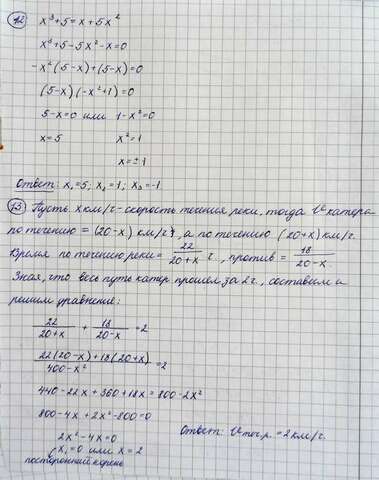 12 x³+5=x+5x²
x³+5-5x²-x=0
-x²(5-x)+(5-x)=0
(5-x)(-x²+1)=0
5-x=0 или 1-x²=0
x=5 x²=1
x=±1
Ответ: x₁=5; x₂=1; x₃=-1
13 Пусть x км/г-скорость течения реки, тогда V катера
по течению = (20-x) км/г, а по течению (20+x) км/г.
Время по течению реки = 22/20+x г., против = 18/20-x.
Зная, что весь путь катер прошел за 2г., составим и
решим уравнение:
22/20+x + 18/20-x =2
22(20-x)+18(20+x)/400-x² =2
440-22x+360+18x=800-2x²
800-4x+2x²-800=0
2x²-4x=0
x₁=0 или x=2
посторонний корень
Ответ: V теч.р. =2км/г.